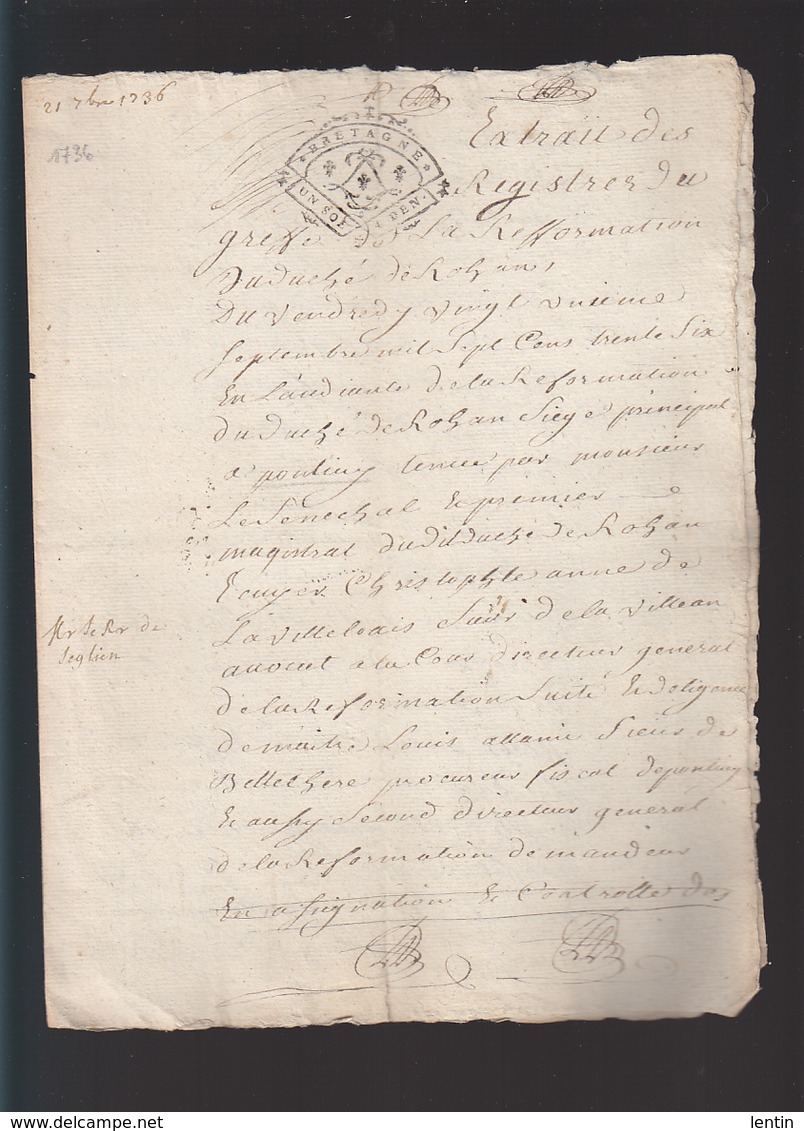 21 7bre 1736
1736
BRETAGNE
UN SOL 4 DEN.
Extrait des
Registres du
greffe de La Refformation
Du duché de Rohan,
Du Vendredy vingt unieme
Septembre mil Sept Cens trente Six
En L'audiance de la Reformation
du duché de Rohan Siege principal
a pontivy tenue par monsieur
Le Senechal & premier
magistrat dudit duché de Rohan
Ecuyer Christophle anne de
La Villeloais Sieur de la Villean
avocat a la Cour directeur general
de la Reformation Suite & diligence
de maitre Louis allanic Sieur de
Bellechere procureur fiscal de pontivy
& aussy Second directeur general
de la Reformation demandeur
En assignation & Controlle des
Mr Le Rr de
Seglien
lentin